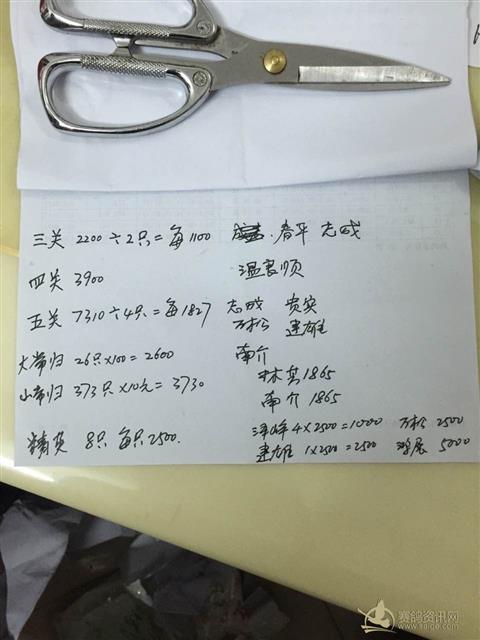 三关 2200÷2只=每1100 春平 志成
四关 3900 温良顺
五关 7310÷4只=每1827 志成 贵实
万松 建雄
大常归 26只×100=2600 南介
小常归 373只×10元=3730 林岳1865
南介 1865
泽峰 4×2500=10000 万松 2500
精英 8只 每只2500. 建雄 1×2500=2500 鸿展 5000
赛鸽资讯网
www.saige.com